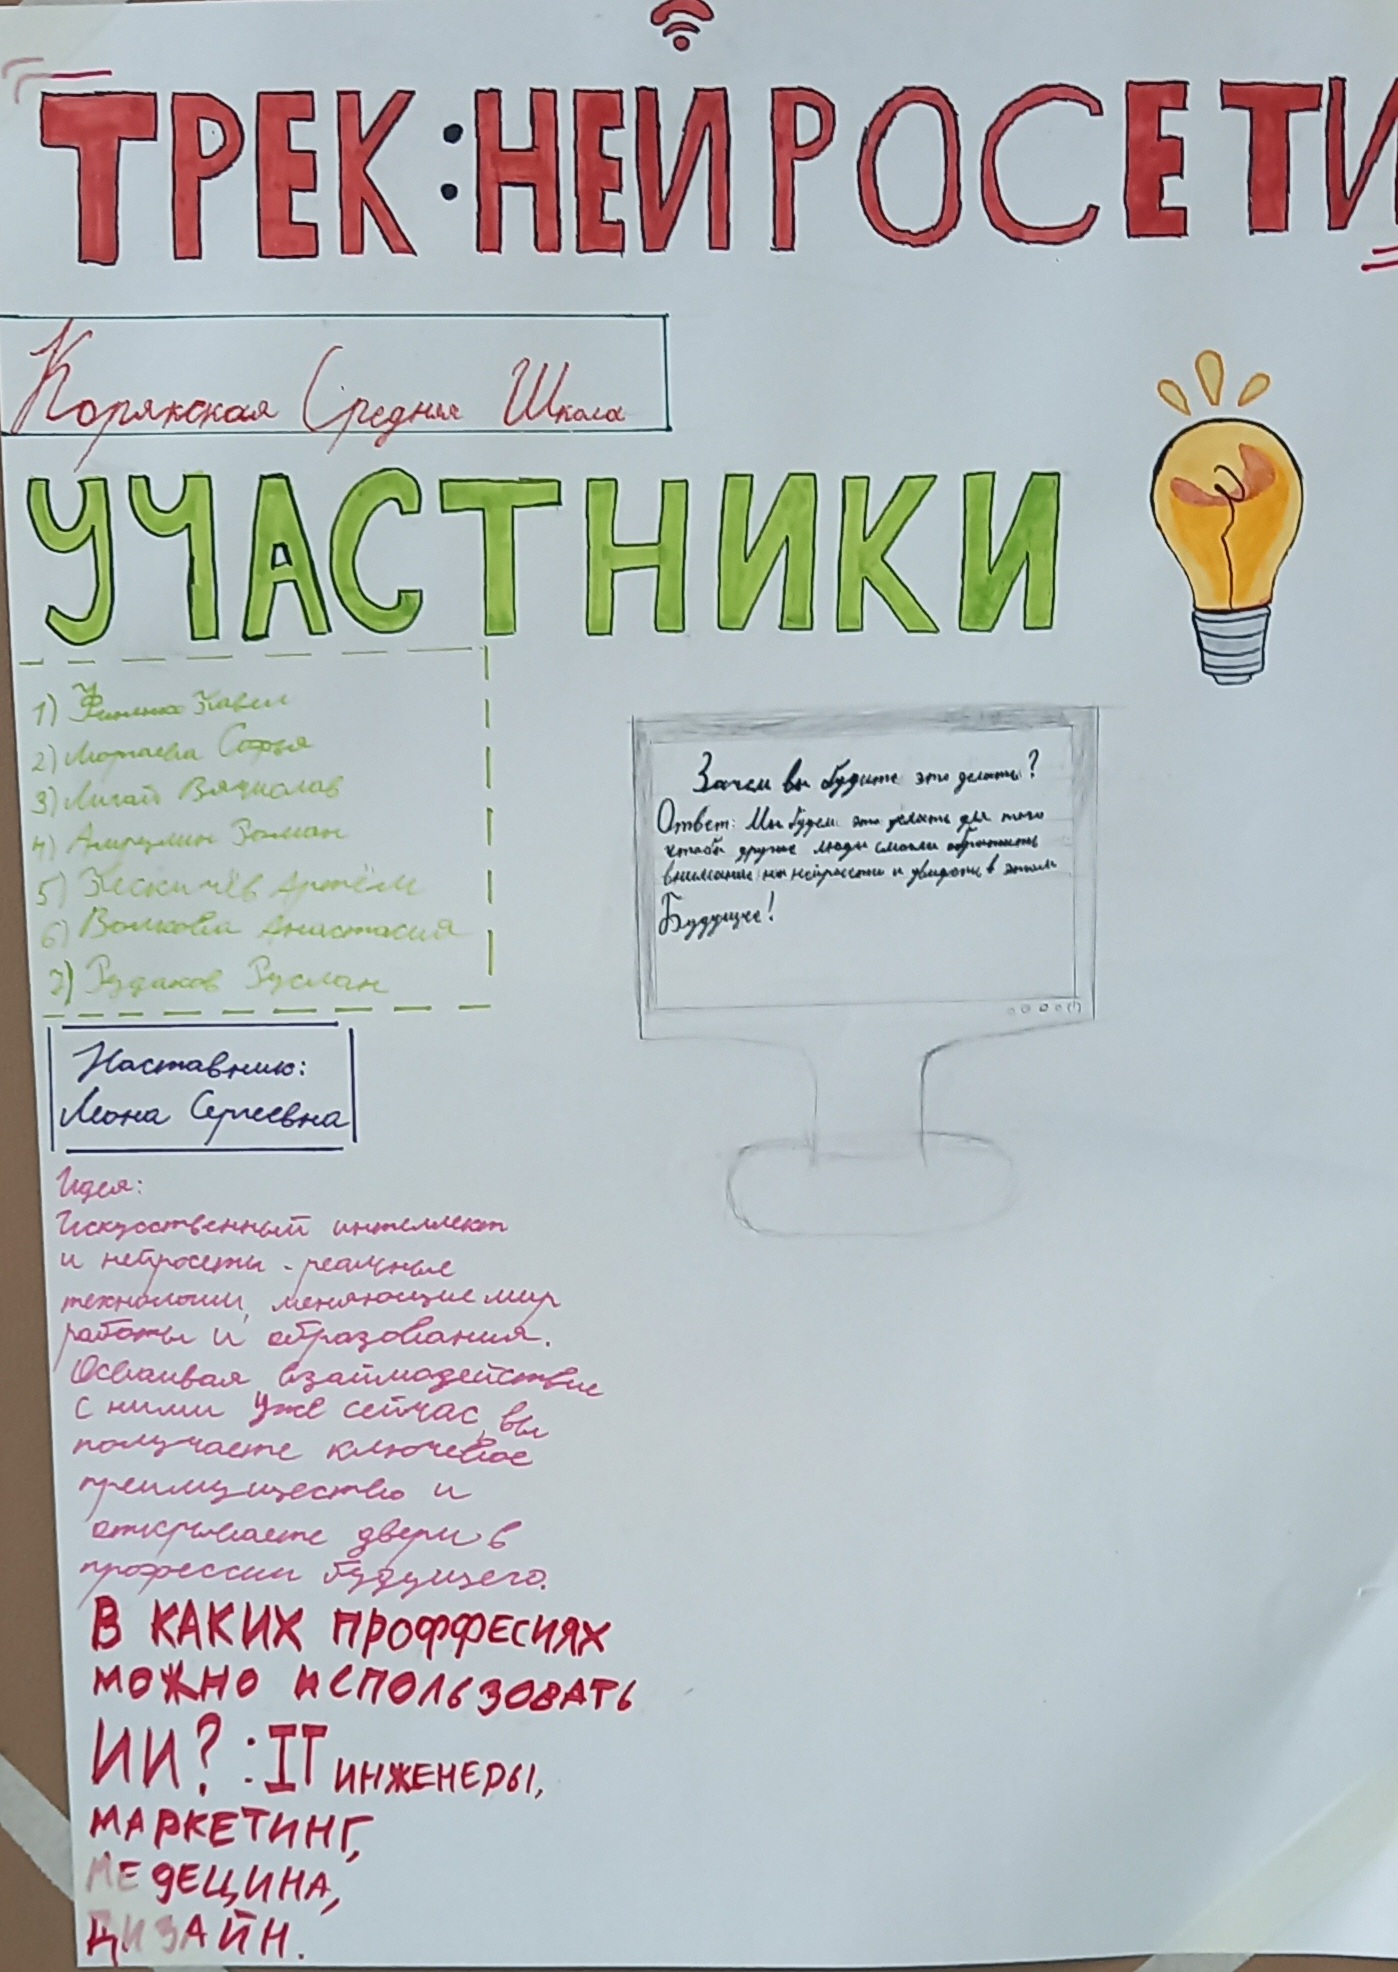 ТРЕК:НЕЙРОСЕТИ
Корякская Средняя Школа
УЧАСТНИКИ
1) Павел
2) Софья
3) Лигай Вячислав
4) Роман
5) Артём
6) Волкова Анастасия
7) Рудаков Руслан
Зачем вы будите это делать?
Ответ: Мы будем это делать для того
чтобы другие люди смогли обратить
внимание на нейросети и увидеть в этом
Будущее!
Наставник:
Илона Сергеевна
Идея:
Искусственный интеллект
и нейросеты - реальные
технологии, меняющие мир
работы и образования.
Осваивая взаймодействие
с ними уже сейчас, вы
получаете ключевое
преимущество и
открываете двери в
профессии будущего.
В КАКИХ ПРОФФЕСИЯХ
МОЖНО ИСПОЛЬЗОВАТЬ
ИИ? : IT ИНЖЕНЕРЫ,
МАРКЕТИНГ,
МЕДЕЦИНА,
ДИЗАЙН.